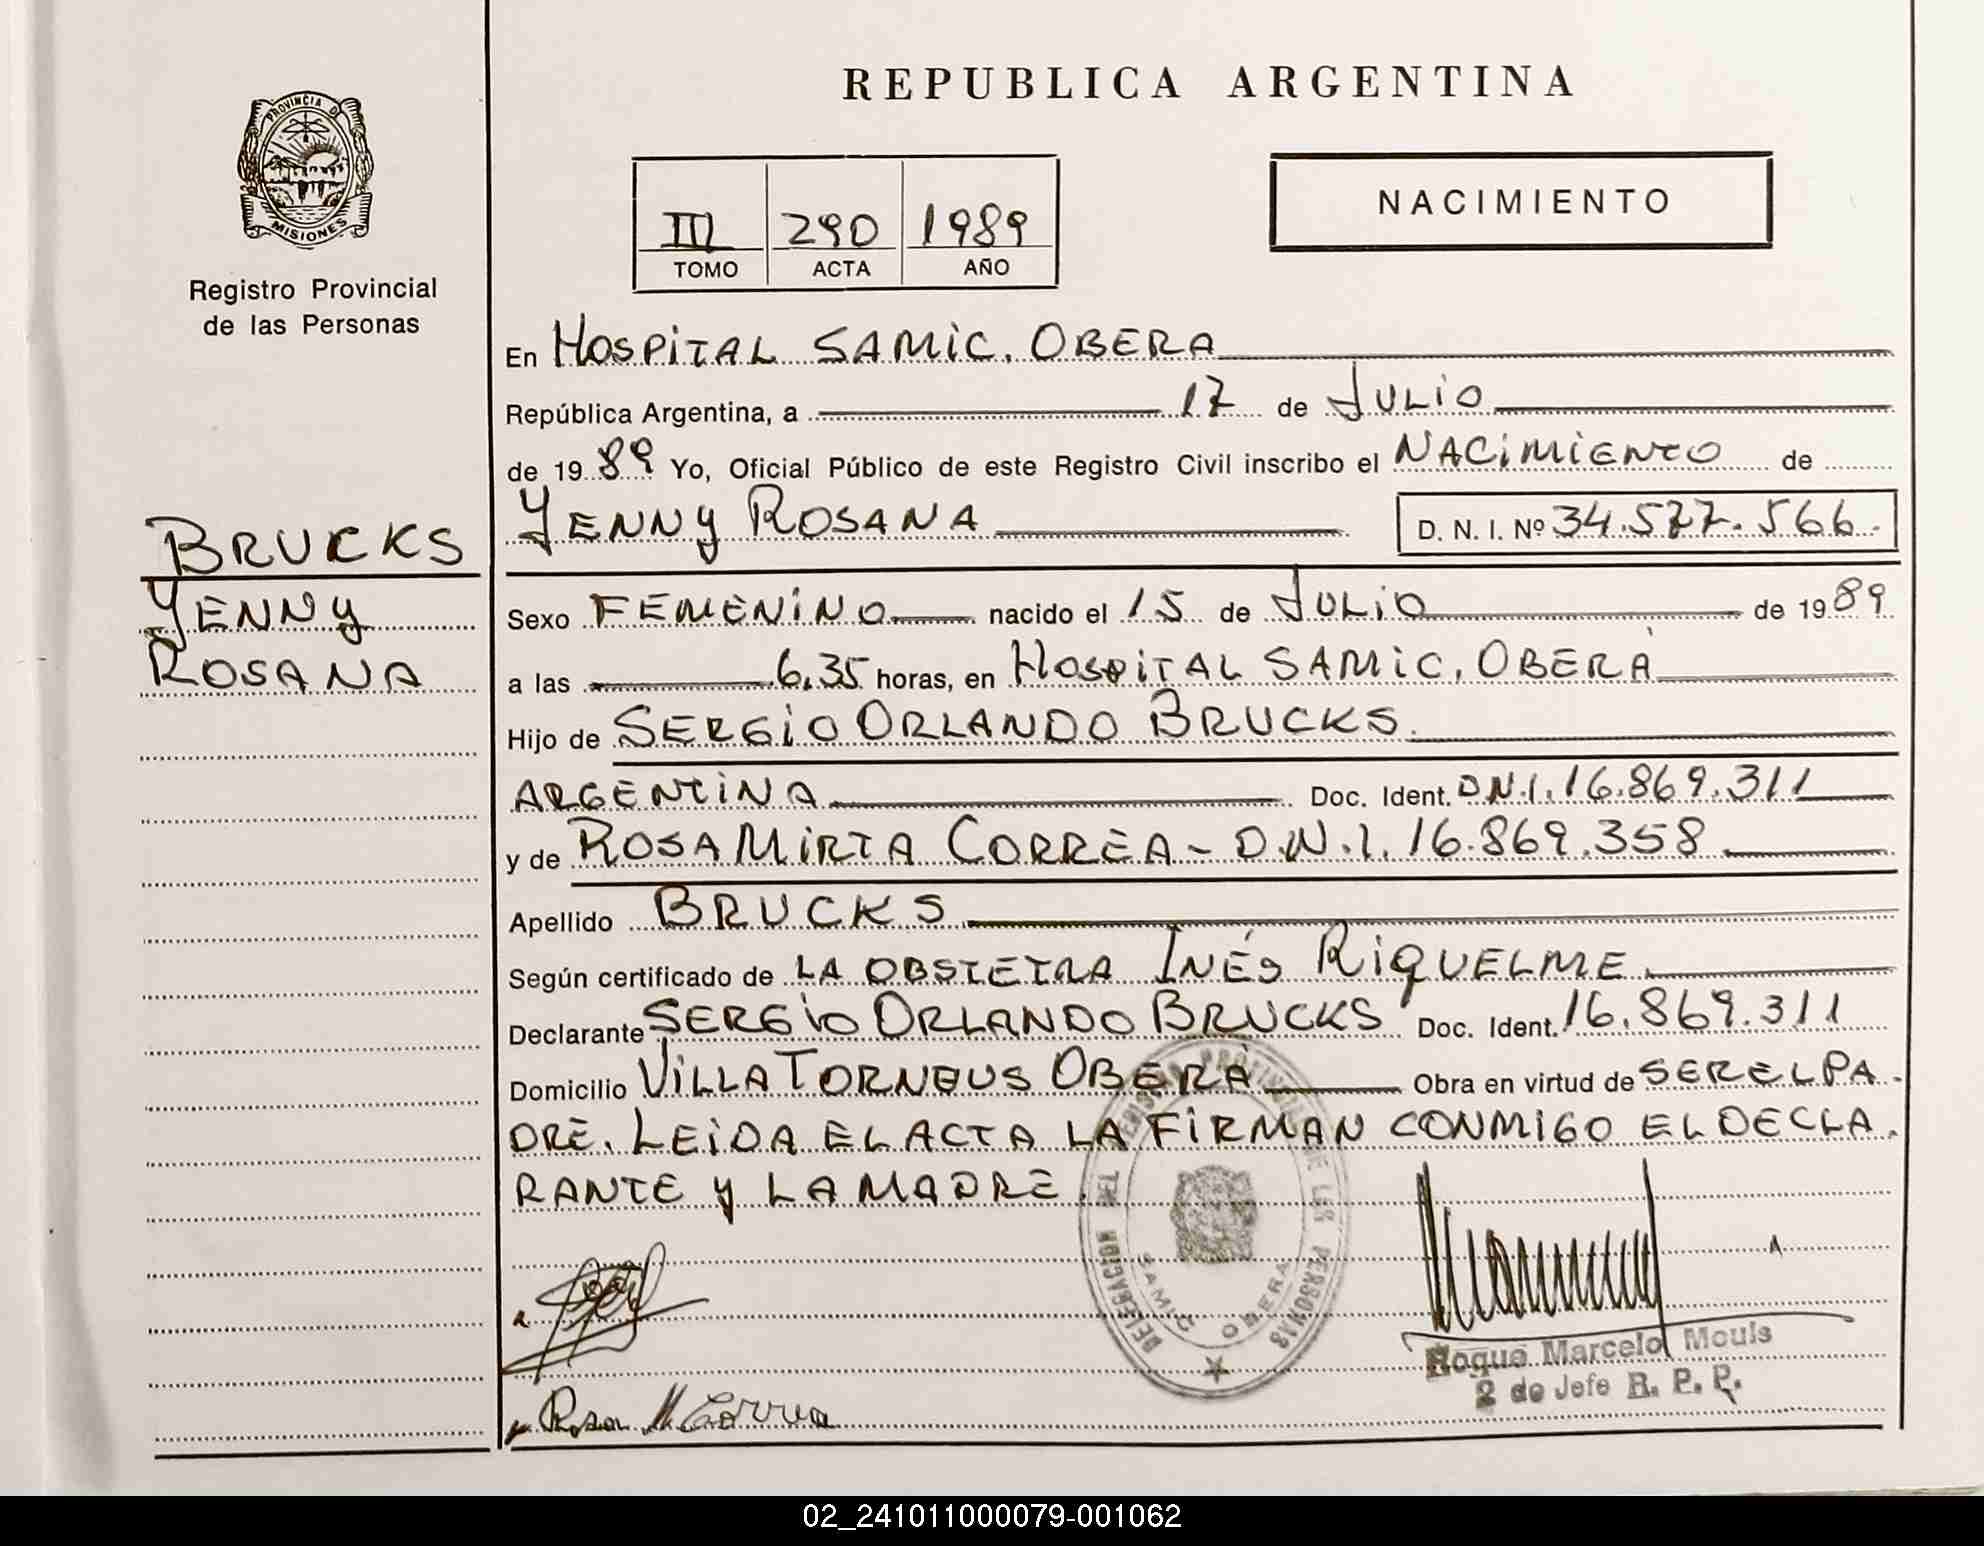 REPUBLICA ARGENTINA
PROVINCIA DE
MISIONES
Registro Provincial
de las Personas
III 290 1989
TOMO ACTA AÑO
NACIMIENTO
BRUCKS
YENNY
ROSANA
En HOSPITAL SAMIC. OBERA
República Argentina, a 17 de JULIO
de 1989 Yo, Oficial Público de este Registro Civil inscribo el NACIMIENTO de
YENNY ROSANA D. N. I. Nº 34.577.566.
Sexo FEMENINO nacido el 15 de JULIO de 1989
a las 6.35 horas, en HOSPITAL SAMIC. OBERÁ
Hijo de SERGIO ORLANDO BRUCKS.
ARGENTINA Doc. Ident. D.N.I. 16.869.311
y de ROSA MIRTA CORREA - D.N.I. 16.869.358
Apellido BRUCKS
Según certificado de LA OBSTETRA INÉS RIQUELME
Declarante SERGIO ORLANDO BRUCKS Doc. Ident. 16.869.311
Domicilio VILLA TORNEUS OBERÁ Obra en virtud de SER EL PA
DRE. LEIDA EL ACTA LA FIRMAN CONMIGO EL DECLA
RANTE Y LA MADRE.
DELEGACION DEL REGISTRO PROVINCIAL DE LAS PERSONAS
SAMIC OBERA
Roque Marcelo Mouls
2 do Jefe R. P. P.
Rosa M Correa
02_241011000079-001062